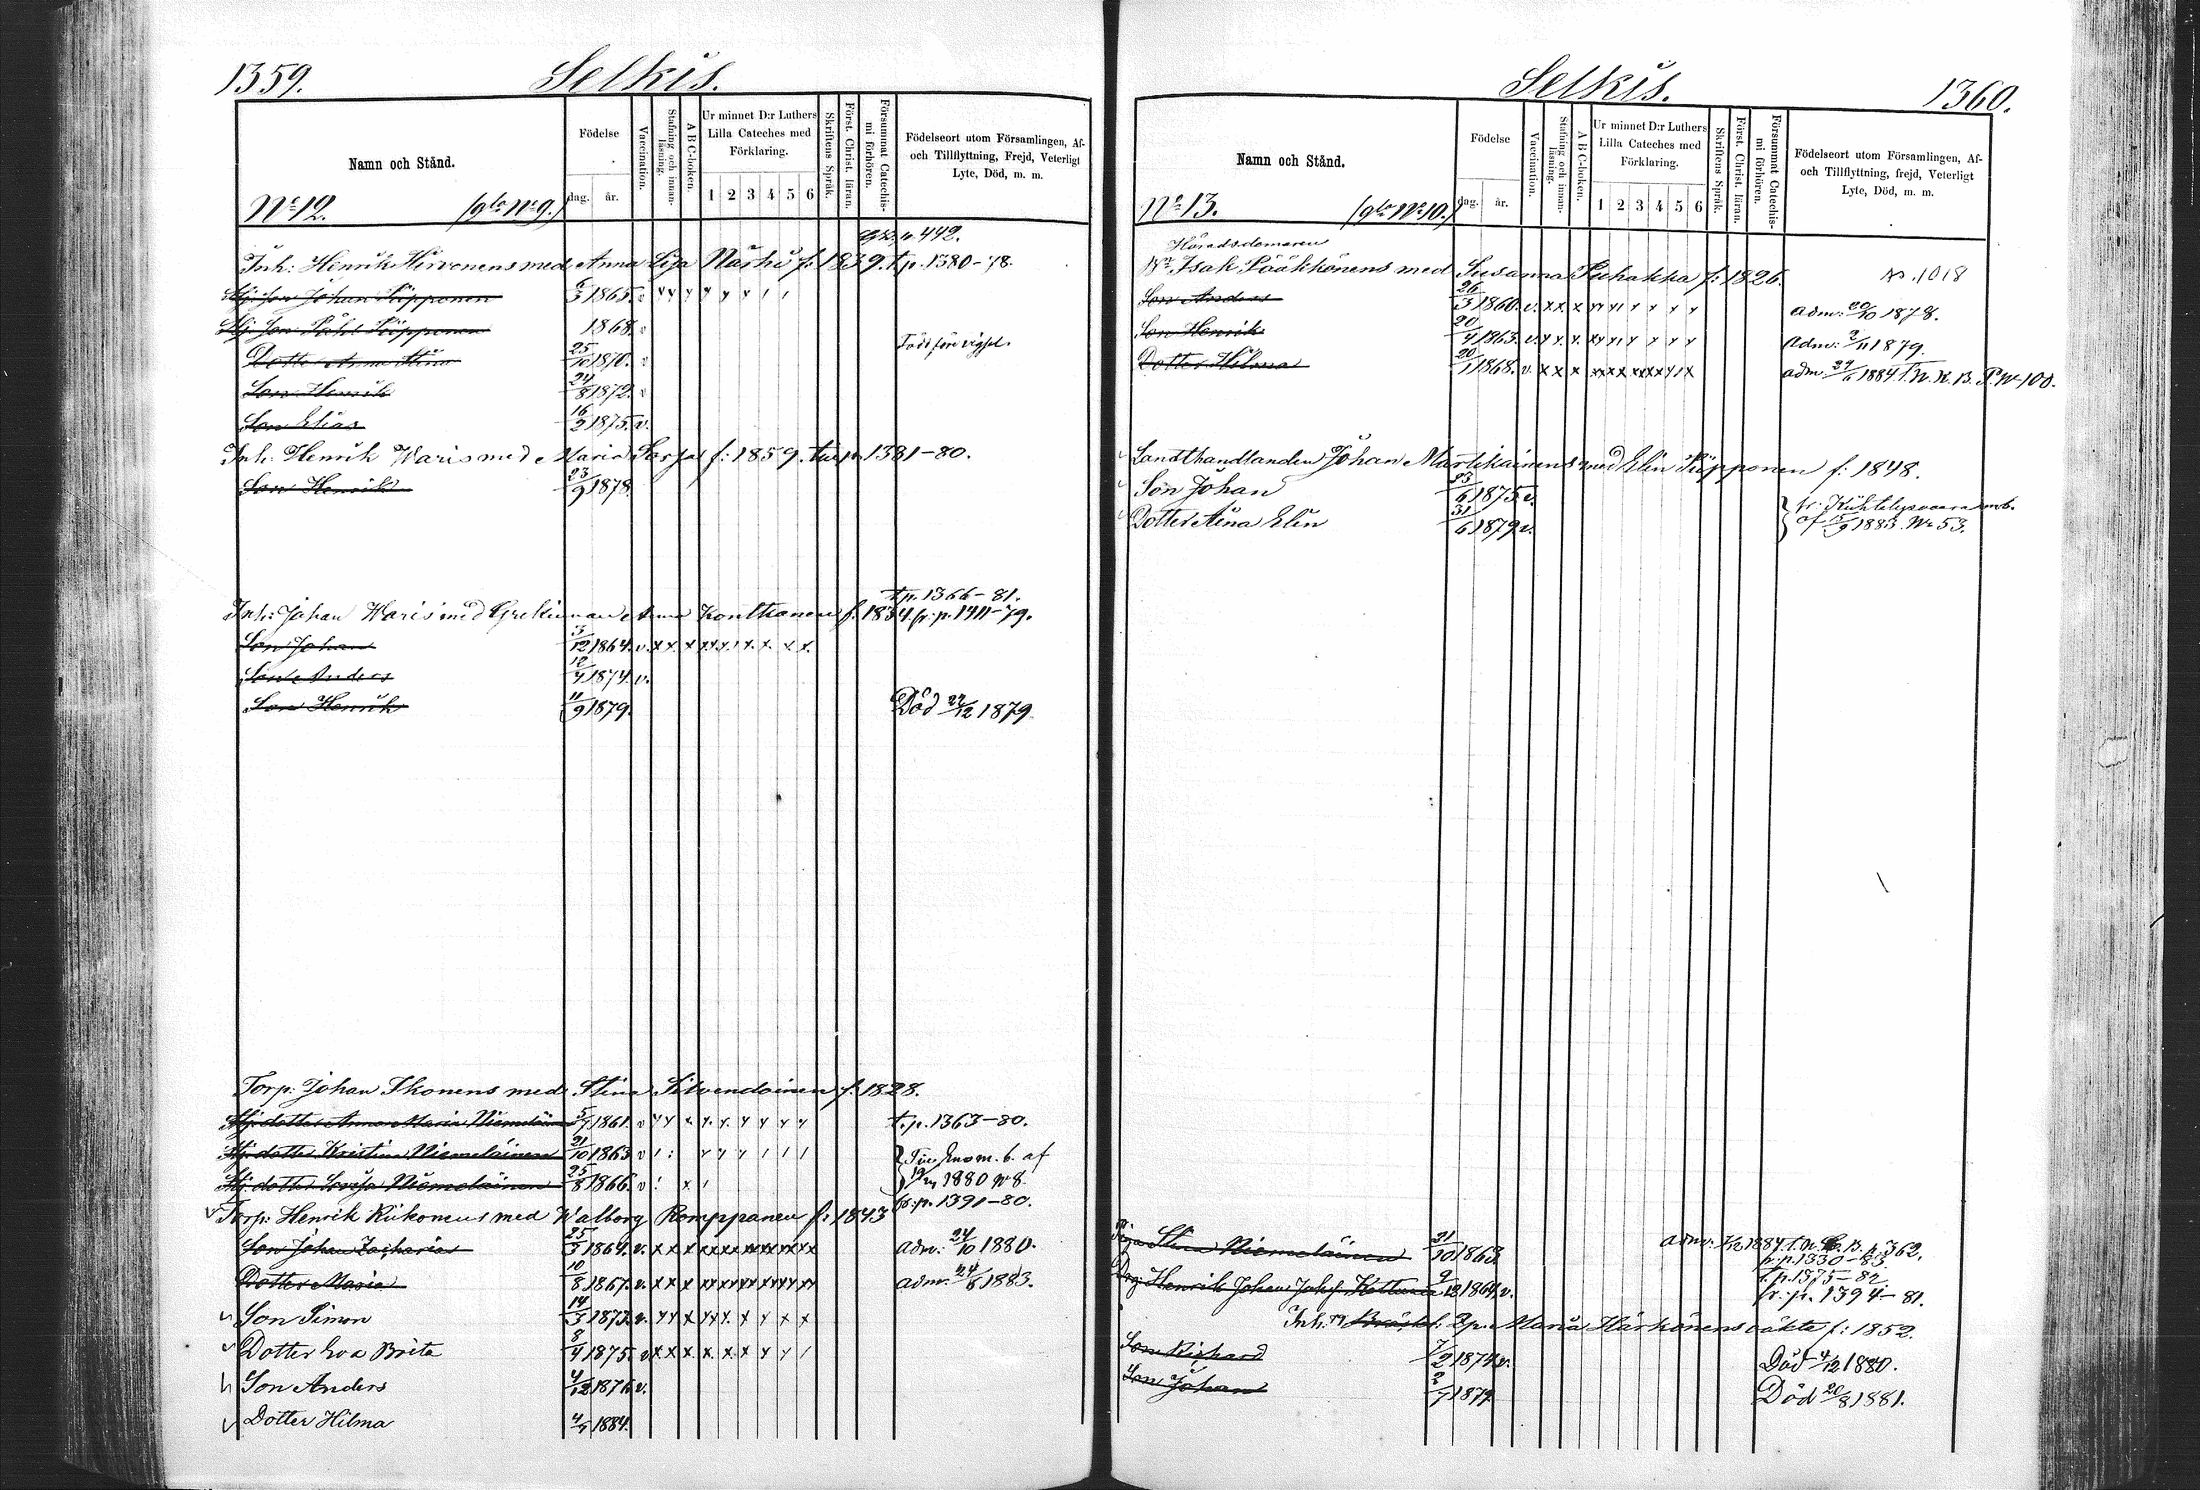 1359. Selkis.
Namn och Stånd.
Födelse
dag. år.
Vaccination.
Stafning och innan-läsning.
A B C-boken.
Ur minnet D:r Luthers
Lilla Cateches med
Förklaring.
1 2 3 4 5 6
Skriftens Språk.
Först. Christ. läran.
Försummat Catechis-mi förhören.
Födelseort utom Församlingen, Af-
och Tillflyttning, Frejd, Veterligt
Lyte, Död, m. m.
No 12. (gla No 9.)
p. 442.
Inh: Henrik Hirvonens med Anna Lisa Närhi f: 1839. t.p. 1380-78.
Son Johan Piipponen 6/3 1865. v
Son Påhl Piipponen 1868. v
Dotter Anna Stina 25/10 1870. v Född före vigsel.
Son Henrik 24/8 1872. v
Son Elias 16/2 1875. v.
Inh: Henrik Waris med Maria Sarja f: 1859. 1381-80.
Son Henrik 23/9 1878.
t.p. 1366-81.
Inh: Johan Waris med Grekinnan Anna Konttanen f. 1834. fr. p. 1411-79.
Son Johan 3/12 1864. v. x x x x x x x x x x
Son Anders 12/4 1874. v.
Son Henrik 11/9 1879. Död 22/12 1879.
Torp: Johan Ikonens med Stina Silvendoinen f: 1828.
dotter Anna Maria Niemeläinen 5/7 1861. v t.p. 1363-80.
dotter Kristina Niemeläinen 21/10 1863 v
dotter Niemeläinen 25/8 1866. v 1880 No 8.
fr. p. 1391-80.
Torp: Henrik Riikonens med Walborg Romppanen f: 1843
Son Johan Zacharias 25/3 1864. v. x x x x x x x x x adm: 24/10 1880.
Dotter Maria 10/8 1867. v. x x x x x x x x x adm: 24/6 1883.
Son Simon 14/3 1873. v.
Dotter Eva Brita 8/4 1875. v
Son Anders 4/12 1876. v.
Dotter Hilma 4/7 1884.
Selkis. 1360.
Namn och Stånd.
Födelse
dag. år.
Vaccination.
Stafning och innan-läsning.
A B C-boken.
Ur minnet D:r Luthers
Lilla Cateches med
Förklaring.
1 2 3 4 5 6
Skriftens Språk.
Först. Christ. läran.
Försummat Catechis-mi förhören.
Födelseort utom Församlingen, Af-
och Tillflyttning, frejd, Veterligt
Lyte, Död, m. m.
No 13. (gla No 10.)
Häradsdomaren
Isak Pääkkönens med Susanna Puhakka f: 1826. 1018
Son Anders 26/3 1860. v. adm: 20/10 1878.
Son Henrik 20/4 1863. v. adm: 2/11 1879.
Dotter Hilma 20/1 1868. v. adm: 1884. T. N. K. B. P. No 100.
Landthandlanden Johan Martikainens med Elin Piipponen f: 1848.
Son Johan 23/6 1875. v.
Dotter Aina Elin 31/6 1879. v. fr: Kiihtelysvaara m.b.
af 15/9 1883. No 53.
Stina Niemeläinen 21/10 1863 adm: 1884. p. 362.
p. 1330-83.
Henrik Johan Kettunen 9/12 1864. v. t.p. 1375-82.
fr. p. 1394-81.
Inh: Maria Härkönens f: 1852.
Son Rickard 7/2 1874. v. Död 4/12 1880.
Son Johan 2/7 1879 Död 20/8 1881.